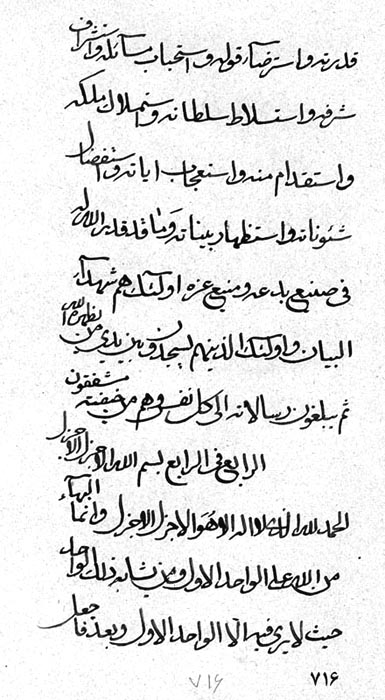 قدرته و استرضاء قوله و استحباب مسائله و استشراف
شرفه و استسلاط سلطانه و استملاك ملكه
و استقدام منه و استعجاب اياته و استفضال
شئوناته و استظهار بيناته و ما قد قدر الله له
فى صنيع بدعه و منيع عزه اولئك هم شهداء
البيان و اولئك الذينهم يسجدون بين يدى من يظهره الله
ثم يبلغون رسالاته الى كل نفس و هم من خيفته مشفقون
الرابع فى الرابع بسم الله الاجزل الاجزل
الحمد لله الذى لا اله الا هو الاجزل الاجزل و انما البهاء
من الله على الواحد الاول و من يشابه ذلك الواحد
حيث لا يرى فيه الا الواحد الاول و بعد فاجعل
٧١۶
٧١۶